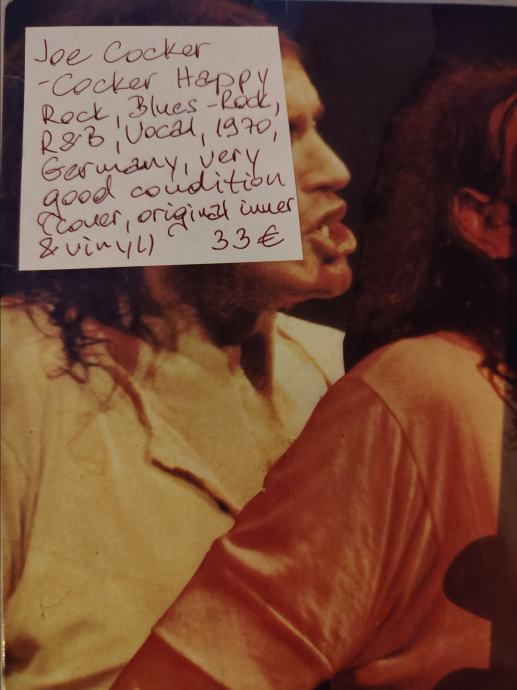 Joe Cocker
-Cocker Happy
Rock, Blues-Rock,
R&B, Vocal, 1970,
Germany, very
good condition
(cover, original inner
& vinyl) 33€